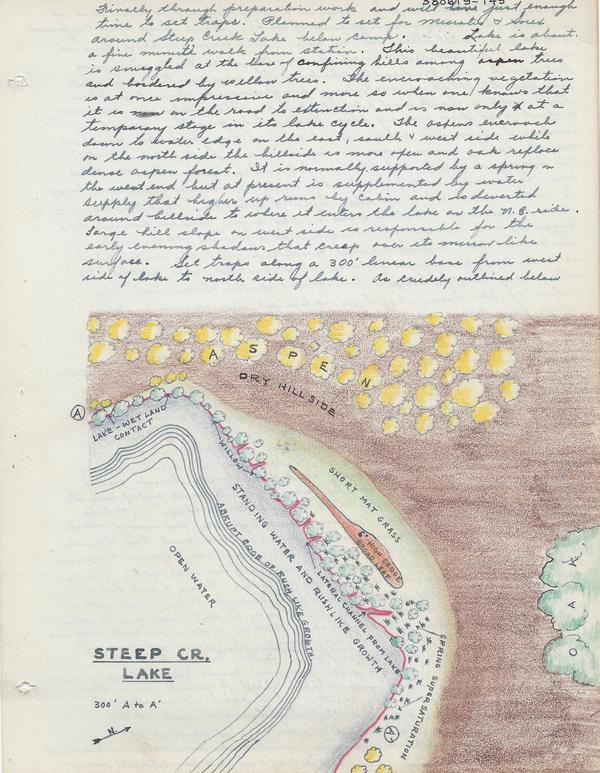 380619-149
Finally through preparation work and will have just enough
time to set traps. Planned to set for Microtus & Sorex
around Steep Creek Lake below camp. Lake is about
a five minute walk from station. This beautiful lake
is smuggled at the base of confining hills among aspen trees
and bordered by willow trees. The encroaching vegetation
is at once impressive and more so when one knows that
it is on the road to extinction and is now only at a
temporary stage in its lake cycle. The aspens encroach
down to water edge on the east, south & west side while
on the north side the hillside is more open and oak replace
dense aspen forest. It is normally supported by a spring on
the west end but at present is supplemented by water
supply that higher up runs by cabin and is deverted
around hillside to where it enters the lake on the N.E. side.
Large hill slope on west side is responsible for the
early evening shadows that creep over its mirror like
surface. Set traps along a 300' linear base from west
side of lake to north side of lake. As crudely outlined below
ASPEN
DRY HILLSIDE
A
LAKE-WETLAND
CONTACT
WILLOW
SHORT MAT GRASS
6' HIGH SEDGE
BROAD LEAF
STANDING WATER AND RUSHLIKE GROWTH
ABRUPT EDGE OF RUSH LIKE GROWTH
LATERAL CHANNEL FROM LAKE
OPEN WATER
OAK
SPRING SUPERSATURATION
STEEP CR.
LAKE
300' A to A'
N
A'